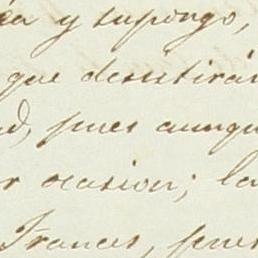 éa y supongo,
que desistirán
ad, pues aunqu
r ocasion; la
Frances, pues